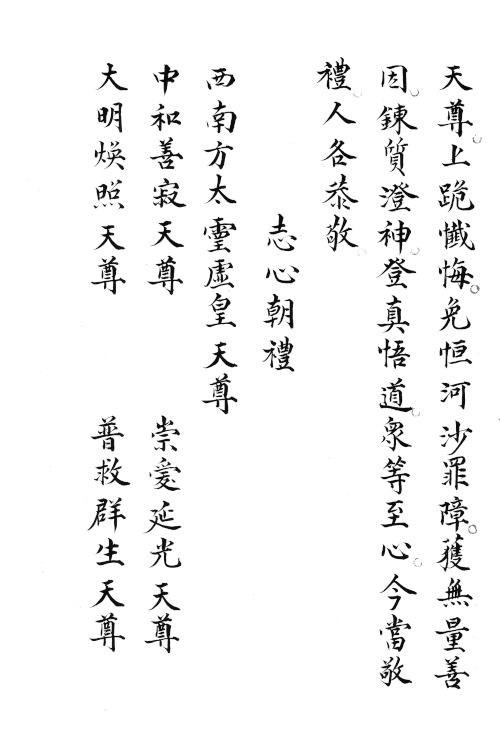 天尊。上跪懺悔。免恒河沙罪障。獲無量善
因。鍊質澄神。登真悟道。眾等至心。今當敬
禮。人各恭敬。
志心朝禮
西南方太靈虛皇天尊
中和善寂天尊 崇愛延光天尊
大明煥照天尊 普救群生天尊